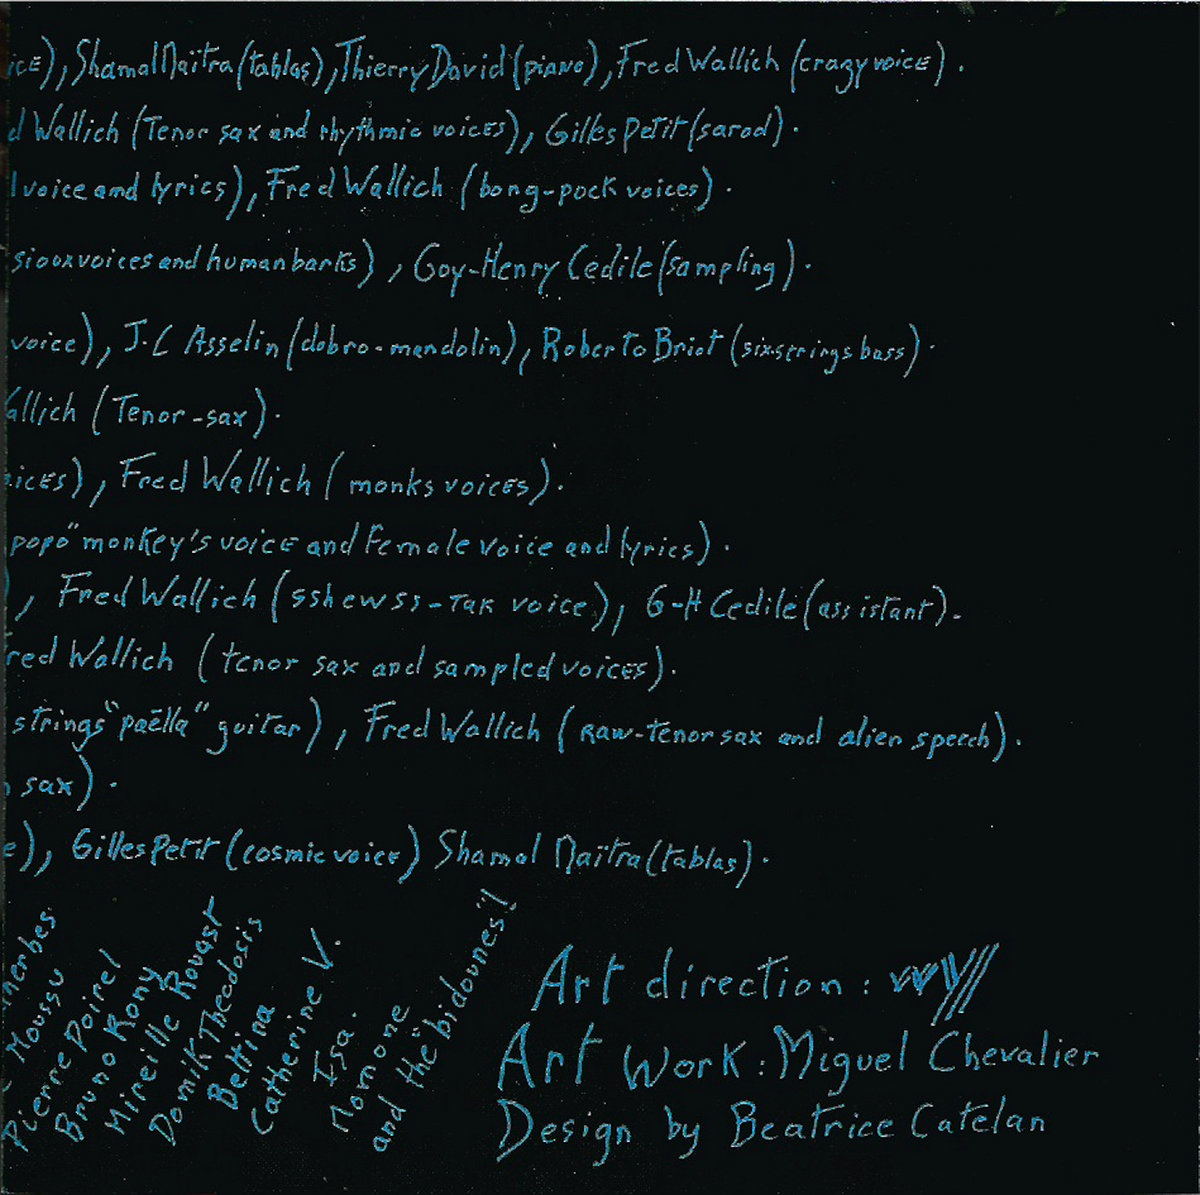 ice), Shamal Maïtra (tablas), Thierry David (piano), Fred Wallich (crazy voice).
d Wallich (Tenor sax and rhythmic voices), Gilles Petit (sarod).
l voice and lyrics), Fred Wallich (bong-pock voices).
siouxvoices and human barks), Goy-Henry Cédile (sampling).
voice), J.C Asselin (dobro-mandolin), Roberto Briot (six strings bass).
allich (Tenor-sax).
ices), Fred Wallich (monks voices).
popo" monkey's voice and female voice and lyrics).
), Fred Wallich (sshewss-Tak voice), G-H Cedile (assistant).
red Wallich (tenor sax and sampled voices).
strings "paëlla" guitar), Fred Wallich (Raw-tenor sax and alien speech).
sax).
e), Gilles Petit (cosmic voice) Shamal Maïtra (tablas).
Moussu
Pierre Poirel
Bruno Rony
Mireille Rouast
Domik Theodosis
Beltina
Catherine V.
Isa.
Momone
and the "bidounes"!
Art direction : VVV//
Art Work : Miguel Chevalier
Design by Beatrice Catelan